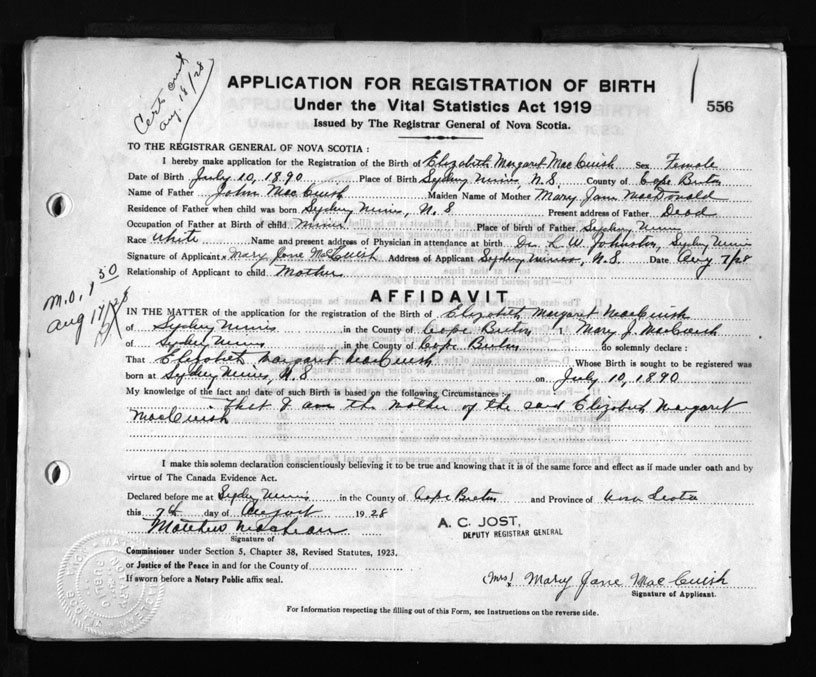 Cert out
Aug 18/28
APPLICATION FOR REGISTRATION OF BIRTH
Under the Vital Statistics Act 1919
Issued by The Registrar General of Nova Scotia.
556
TO THE REGISTRAR GENERAL OF NOVA SCOTIA :
I hereby make application for the Registration of the Birth of Elizabeth Margaret MacCuish Sex Female
Date of Birth July 10, 1890 Place of Birth Sydney Mines, N.S. County of Cape Breton
Name of Father John MacCuish Maiden Name of Mother Mary Jane MacDonald
Residence of Father when child was born Sydney Mines, N.S Present address of Father Dead
Occupation of Father at Birth of child miner Place of birth of Father Sydney Mines
Race White Name and present address of Physician in attendance at birth Dr. L. W. Johnston, Sydney Mines
Signature of Applicant Mary Jane MacCuish Address of Applicant Sydney Mines, N.S Date Aug 7/28
Relationship of Applicant to child Mother
M.O. 1 50
Aug 17/28
AFFIDAVIT
IN THE MATTER of the application for registration of the Birth of Elizabeth Margaret MacCuish
of Sydney Mines in the County of Cape Breton I Mary J. MacCuish
of Sydney Mines in the County of Cape Breton do solemnly declare :
That Elizabeth Margaret MacCuish Whose Birth is sought to be registered was
born at Sydney Mines, N.S on July 10, 1890
My knowledge of the fact and date of such Birth is based on the following Circumstances :
That I am the mother of the said Elizabeth Margaret
MacCuish
I make this solemn declaration conscientiously believing it to be true and knowing that it is of the same force and effect as if made under oath and by
virtue of The Canada Evidence Act.
Declared before me at Sydney Mines in the County of Cape Breton and Province of Nova Scotia
this 7th day of August 1928
Matthew MacLean
Signature of
A. C. JOST,
DEPUTY REGISTRAR GENERAL
Commissioner under Section 5, Chapter 38, Revised Statutes, 1923.
or Justice of the Peace in and for the County of
If sworn before a Notary Public affix seal.
(Mrs) Mary Jane MacCuish
Signature of Applicant.
For Information respecting the filling out of this Form, see Instructions on the reverse side.